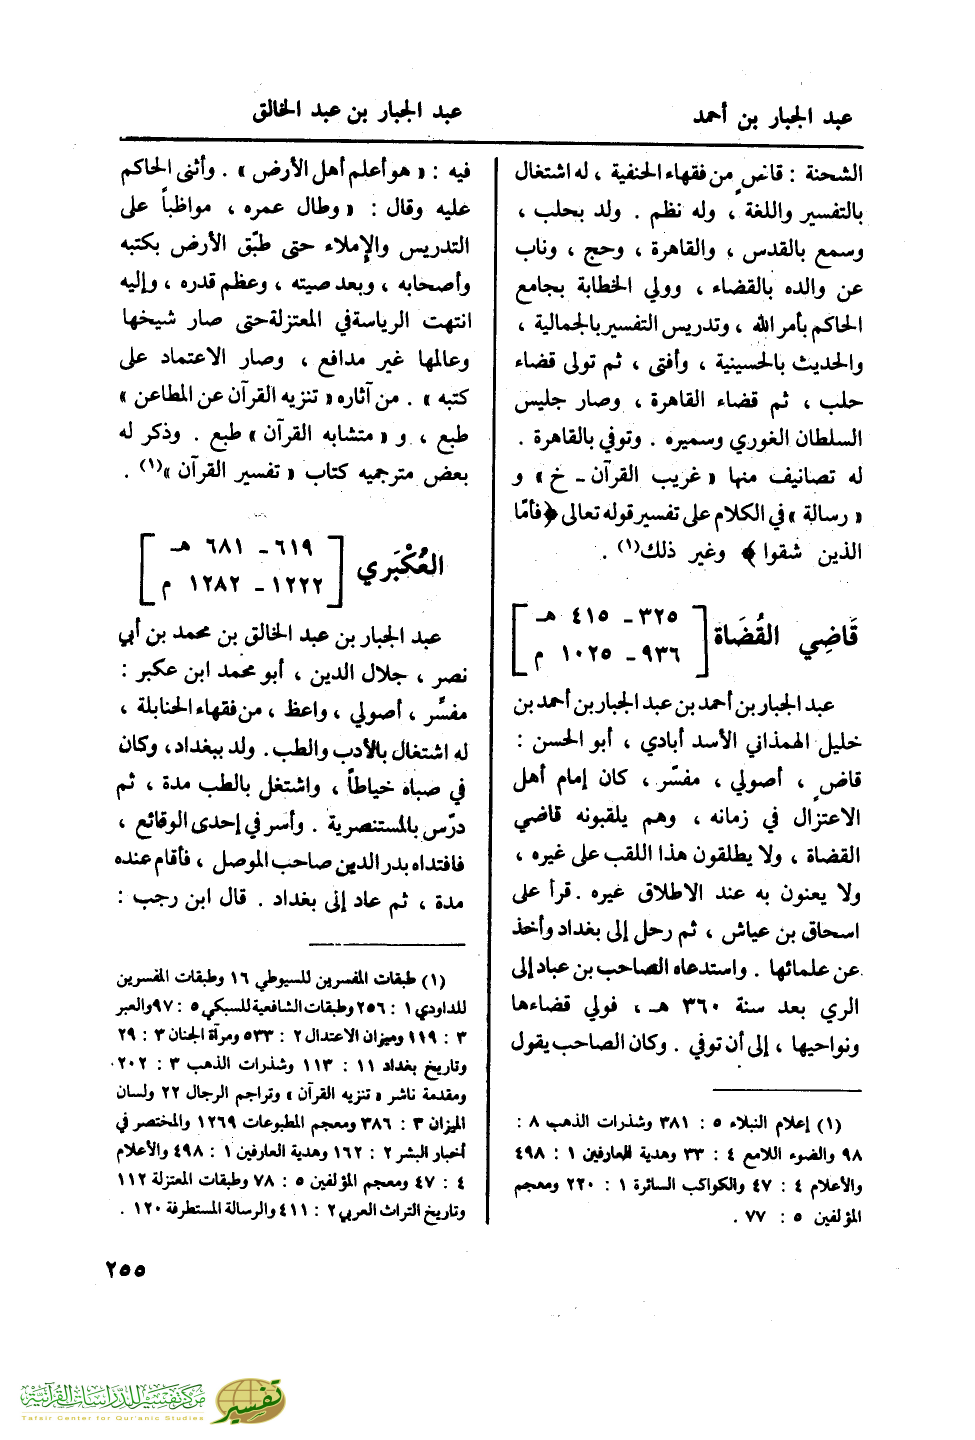 عبد الجبار بن أحمد
عبد الجبار بن عبد الخالق
الشحنة : قاضٍ من فقهاء الحنفية ، له اشتغال
بالتفسير واللغة ، وله نظم . ولد بحلب ،
وسمع بالقدس ، والقاهرة ، وحج ، وناب
عن والده بالقضاء ، وولي الخطابة بجامع
الحاكم بأمر الله ، وتدريس التفسير بالجمالية ،
والحديث بالحسينية ، وأفتى ، ثم تولى قضاء
حلب ، ثم قضاء القاهرة ، وصار جليس
السلطان الغوري وسميره . وتوفي بالقاهرة .
له تصانيف منها « غريب القرآن - خ » و
« رسالة » في الكلام على تفسير قوله تعالى ﴿ فأمّا
الذين شقوا ﴾ وغير ذلك(١) .
قَاضِي القُضَاة [ ٣٢٥ - ٤١٥ هـ
٩٣٦ - ١٠٢٥ م ]
عبد الجبار بن أحمد بن عبد الجبار بن أحمد بن
خليل الهمذاني الأسد أبادي ، أبو الحسن :
قاضٍ ، أصولي ، مفسّر ، كان إمام أهل
الاعتزال في زمانه ، وهم يلقبونه قاضي
القضاة ، ولا يطلقون هذا اللقب على غيره ،
ولا يعنون به عند الاطلاق غيره . قرأ على
اسحاق بن عياش ، ثم رحل إلى بغداد وأخذ
عن علمائها . واستدعاه الصاحب بن عباد إلى
الري بعد سنة ٣٦٠ هـ ، فولي قضاءها
ونواحيها ، إلى أن توفي . وكان الصاحب يقول
(١) إعلام النبلاء ٥ : ٣٨١ وشذرات الذهب ٨ :
٩٨ والضوء اللامع ٤ : ٣٣ وهدية العارفين ١ : ٤٩٨
والأعلام ٤ : ٤٧ والكواكب السائرة ١ : ٢٢٠ ومعجم
المؤلفين ٥ : ٧٧ .
فيه : « هو أعلم أهل الأرض » . وأثنى الحاكم
عليه وقال : « وطال عمره ، مواظباً على
التدريس والإملاء حتى طبّق الأرض بكتبه
وأصحابه ، وبعد صيته ، وعظم قدره ، وإليه
انتهت الرياسة في المعتزلة حتى صار شيخها
وعالمها غير مدافع ، وصار الاعتماد على
كتبه » . من آثاره « تنزيه القرآن عن المطاعن »
طبع ، و « متشابه القرآن » طبع . وذكر له
بعض مترجميه كتاب « تفسير القرآن »(١) .
العُكْبَري [ ٦١٩ - ٦٨١ هـ
١٢٢٢ - ١٢٨٢ م ]
عبد الجبار بن عبد الخالق بن محمد بن أبي
نصر ، جلال الدين ، أبو محمد ابن عكبر :
مفسَّر ، أصولي ، واعظ ، من فقهاء الحنابلة ،
له اشتغال بالأدب والطب . ولد ببغداد ، وكان
في صباه خياطاً ، واشتغل بالطب مدة ، ثم
درّس بالمستنصرية . وأسر في إحدى الوقائع ،
فافتداه بدر الدين صاحب الموصل ، فأقام عنده
مدة ، ثم عاد إلى بغداد . قال ابن رجب :
(١) طبقات المفسرين للسيوطي ١٦ وطبقات المفسرين
للداودي ١ : ٢٥٦ وطبقات الشافعية للسبكي ٥ : ٩٧ والعبر
٣ : ١١٩ وميزان الاعتدال ٢ : ٥٣٣ ومرآة الجنان ٣ : ٢٩
وتاريخ بغداد ١١ : ١١٣ وشذرات الذهب ٣ : ٢٠٢
ومقدمة ناشر « تنزيه القرآن » وتراجم الرجال ٢٢ ولسان
الميزان ٣ : ٣٨٦ ومعجم المطبوعات ١٢٦٩ والمختصر في
أخبار البشر ٢ : ١٦٢ وهدية العارفين ١ : ٤٩٨ والأعلام
٤ : ٤٧ ومعجم المؤلفين ٥ : ٧٨ وطبقات المعتزلة ١١٢
وتاريخ التراث العربي ٢ : ٤١١ والرسالة المستطرفة ١٢٠ .
٢٥٥
مركز تفسير للدراسات القرآنية
Tafsir Center for Qur'anic Studies
تفسير